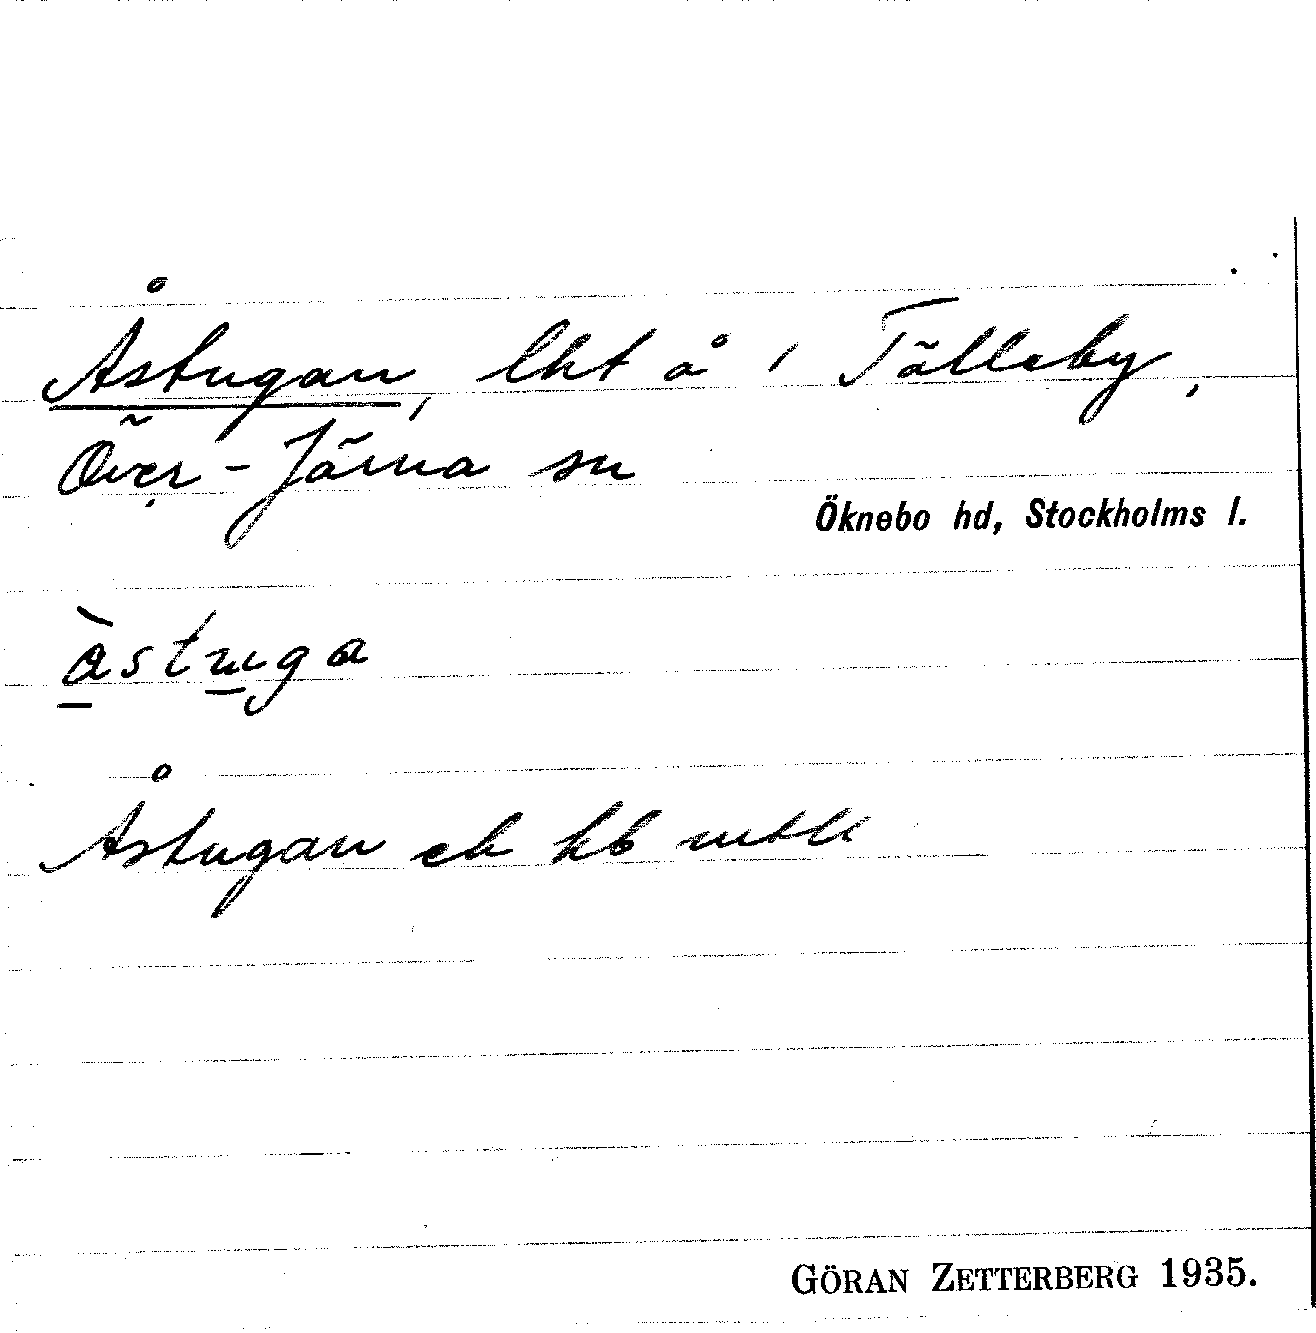 Åstugan, lht å i Tälleby,
Över-Järna sn
Öknebo hd, Stockholms l.
àstuga
Åstugan ek hb
GÖRAN ZETTERBERG 1935.